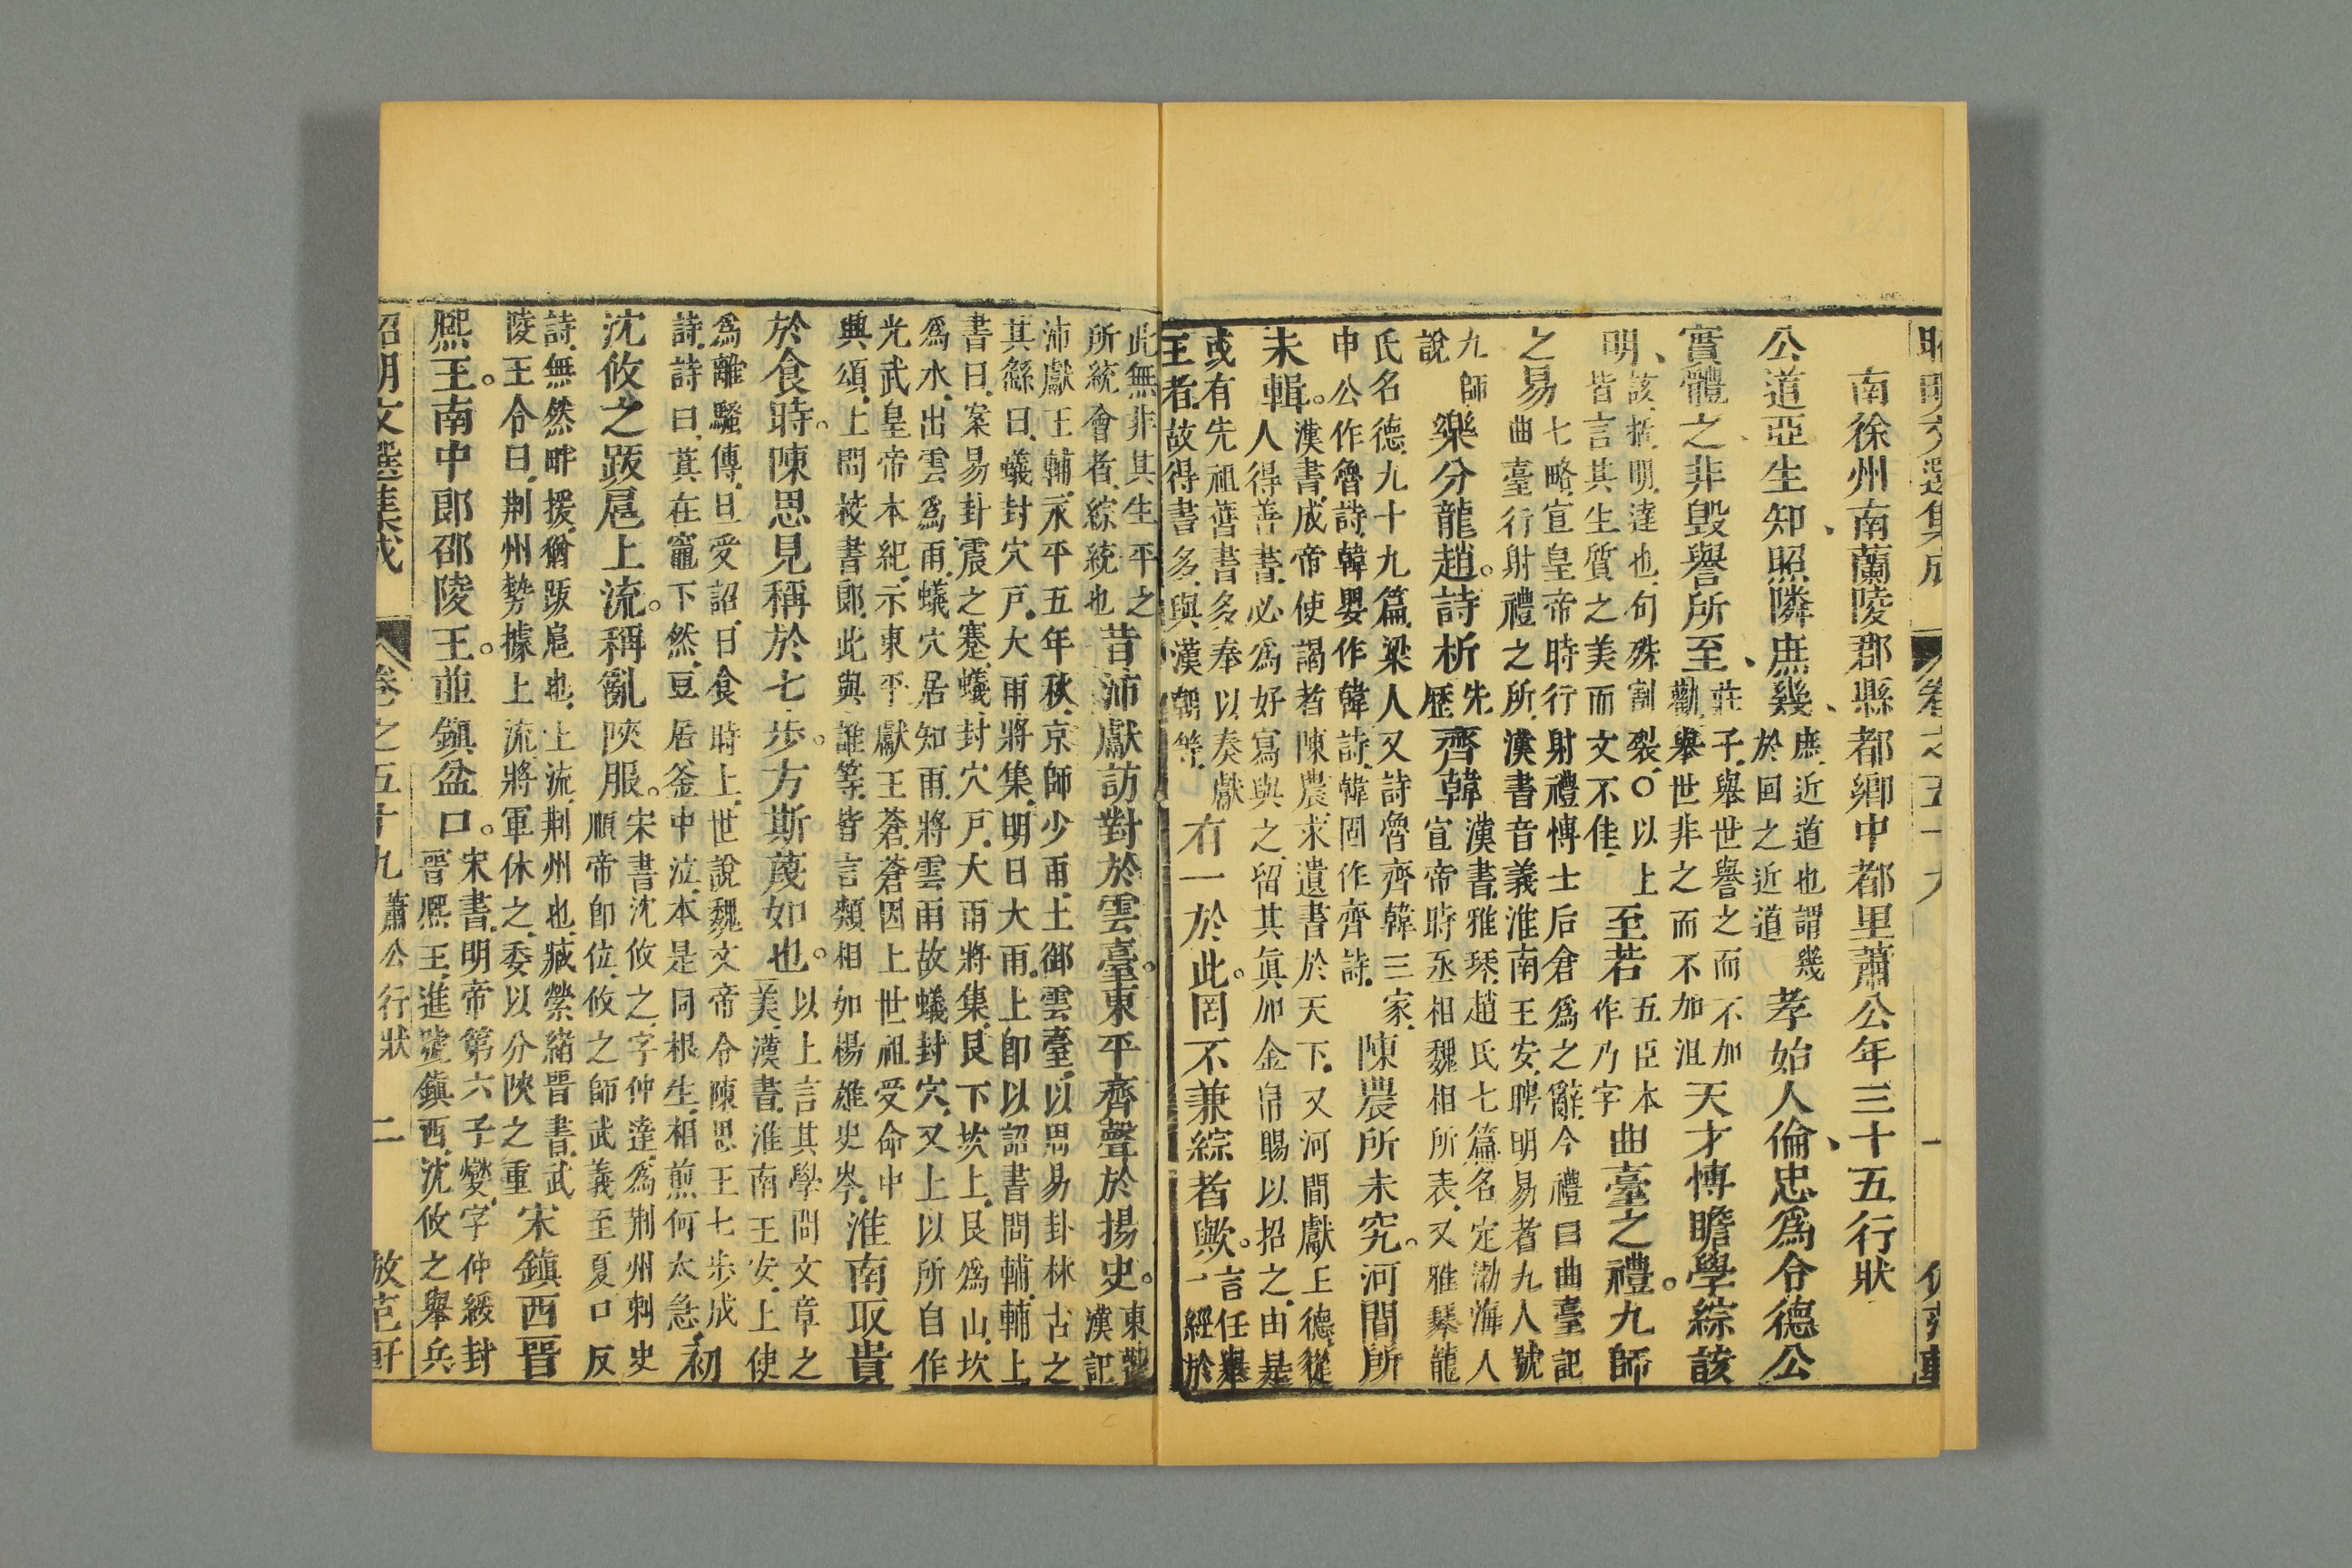 南徐州南蘭陵郡縣都鄉中都里蕭公年三十五行狀
公道亞生知、照隣庶幾、
庶、近道也謂幾
於回之近道
孝始人倫、忠爲令德公
實體之、非毀譽所至、
莊子、舉世譽之而不加
勸、舉世非之而不加沮
天才博瞻學綜該
明、
該、括、明、達也、句殊割裂、○以上
皆言其生質之美而文不佳、
至若
五臣本
作乃字
曲臺之禮。九師
之易
七略、宣皇帝時行射禮博士后倉爲之辭、今禮曰曲臺記
曲臺行射禮之所、漢書音義淮南王安、聘明易者九人號
九師
說
樂分龍趙。詩析
先
歷
齊韓
漢書、雅琴、趙氏七篇名定渤海人
宣帝時丞相魏相所表、又雅琴龍
氏名德、九十九篇、梁人又詩魯齊韓三家、
申公作魯詩、韓嬰作韓詩、韓固作齊詩、
陳農所未究。河間所
未輯。
漢書、成帝使謁者陳農、求遺書於天下、又河間獻王德、從
人得善書、必爲好寫與之、留其眞加金帛賜以招之、由是
或有先祖舊書多奉以奏獻
王者、故得書多、與漢朝等、
有一於此。罔不兼綜者歟。
言任舉
一經於
此無非其生平之
所統會者、綜統也
昔沛獻訪對於雲臺。東平齊聲於揚史。
東觀
漢記
沛獻王輔、永平五年秋、京師少雨、上御雲臺、以周易卦林占之
其繇曰、蟻封穴戶、大雨將集、明日大雨、上卽以詔書問輔、輔上
書曰、案易卦震之蹇、蟻封穴戶、大雨將集、艮下坎上、艮爲山、坎
爲水、出雲爲雨、蟻穴居知雨、將雲雨故蟻封穴、又上以所自作
光武皇帝本紀、示東平獻王蒼、蒼因上世祖受命中
興頌、上問校書郞、此與誰等、皆言類相如楊雄史岑、
淮南取貴
於食時。陳思見稱於七步。方斯蔑如也。
以上言其學問文章之
美、漢書、淮南王安、上使
爲離騷傳、旦受詔、日食時上、世說魏文帝令陳思王七步成
詩、詩曰、萁在竈下然、豆居釜中泣、本是同根生、相煎何太急、
初
沈攸之跋扈上流。稱亂陝服。
宋書沈攸之、字仲達、爲荆州刺史
順帝卽位、攸之師武義至夏口反
詩、無然畔援、猶跋扈也、上流、荆州也、臧榮緖晉書、武
陵王令曰、荆州勢據上流、將軍休之、委以分陝之重
宋鎭西晉
熙王。南中郎邵陵王。並鎭盆口。
宋書、明帝第六子燮、字仲綏封
晉熙王、進號鎭西、沈攸之舉兵
卷之五十九 蕭公行狀 二